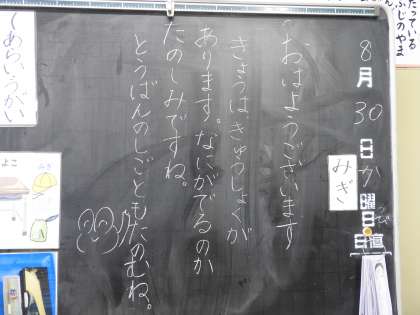 8月30日か曜日
日直
みぎ
おはようございます
きょうは、きゅうしょくが
あります。なにがでるのか
たのしみですね。
とうばんのしごともたのむね。
たっている
ふじのやま
しあらいうがい
よこ